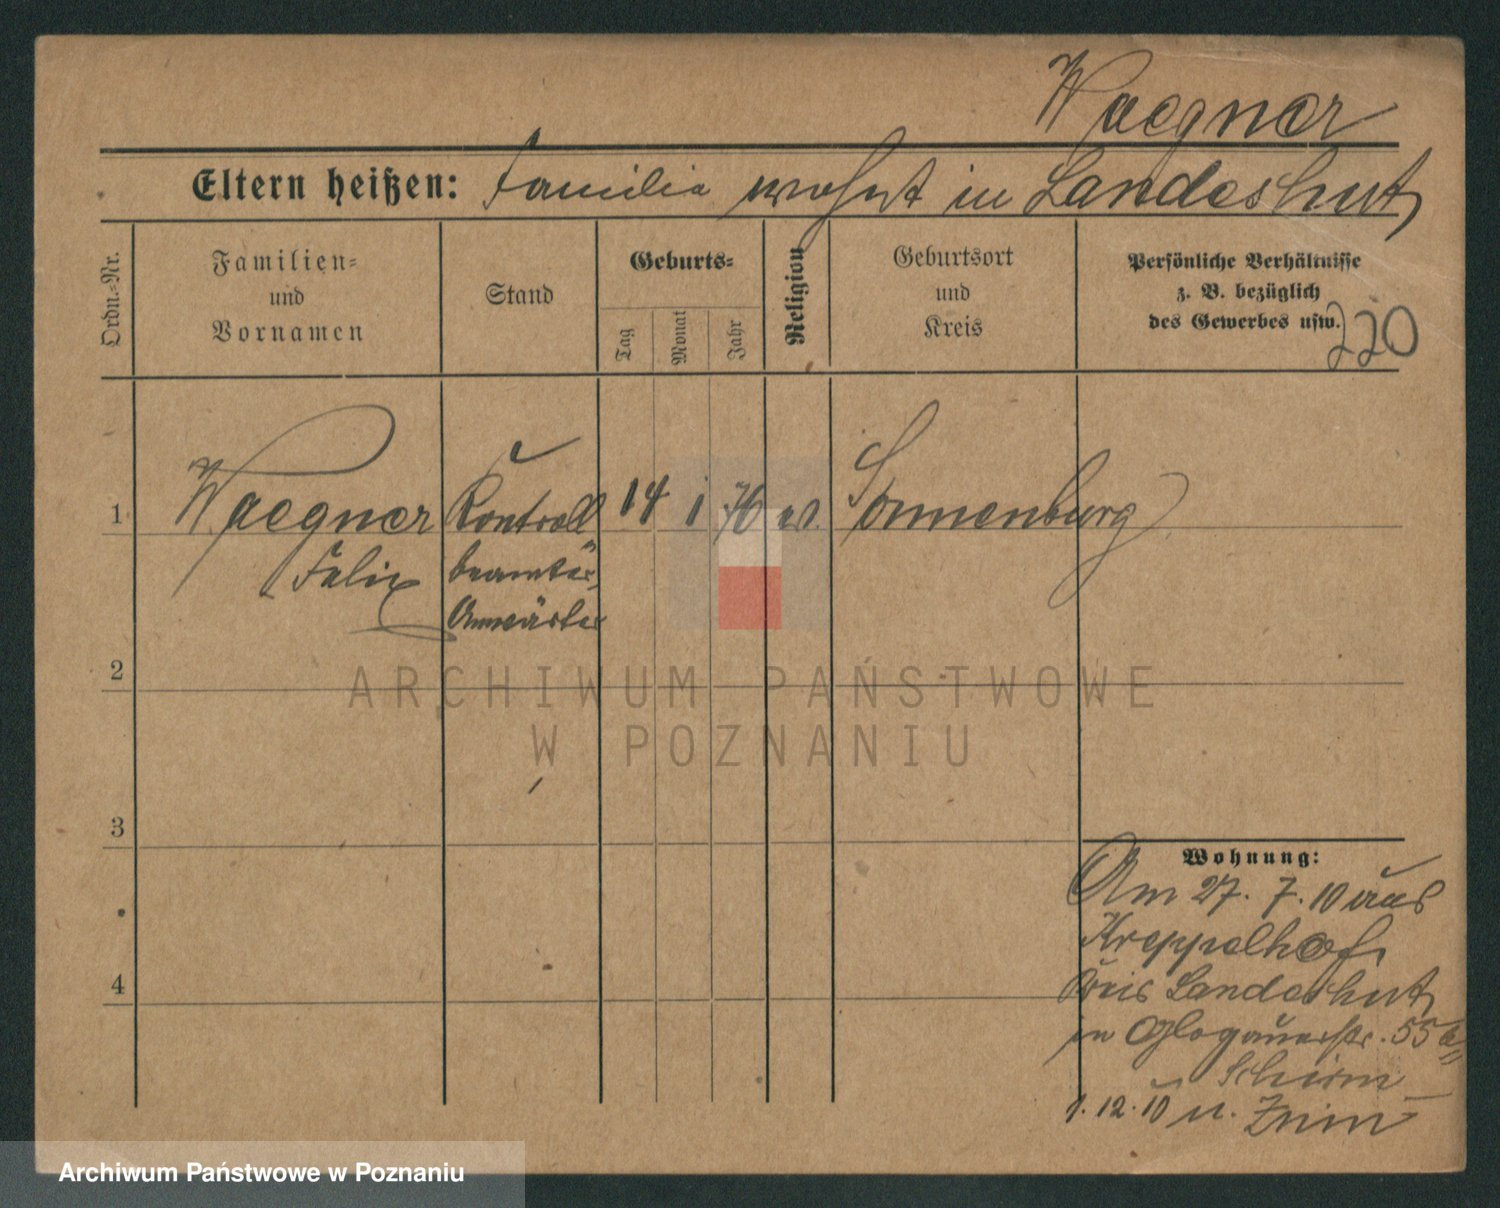 Waegner
Eltern heißen: Familie wohnt in Landeshut
Ordn.-Nr.
Familien-
und
Vornamen
Stand
Geburts-
Tag
Monat
Jahr
Religion
Geburtsort
und
Kreis
Persönliche Verhältnisse
z. B. bezüglich
des Gewerbes usw.
220
1 Waegner Kontroll 14 1 76 ev. Sonnenburg
Felix beamter
Anwärter
2
ARCHIWUM PAŃSTWOWE
W POZNANIU
3
Wohnung:
Am 27. 7. 10 aus
Kreppelhof,
Kreis Landeshut,
4
in Glogauerstr. 55
Schirm
1. 12. 10 u.
Archiwum Państwowe w Poznaniu